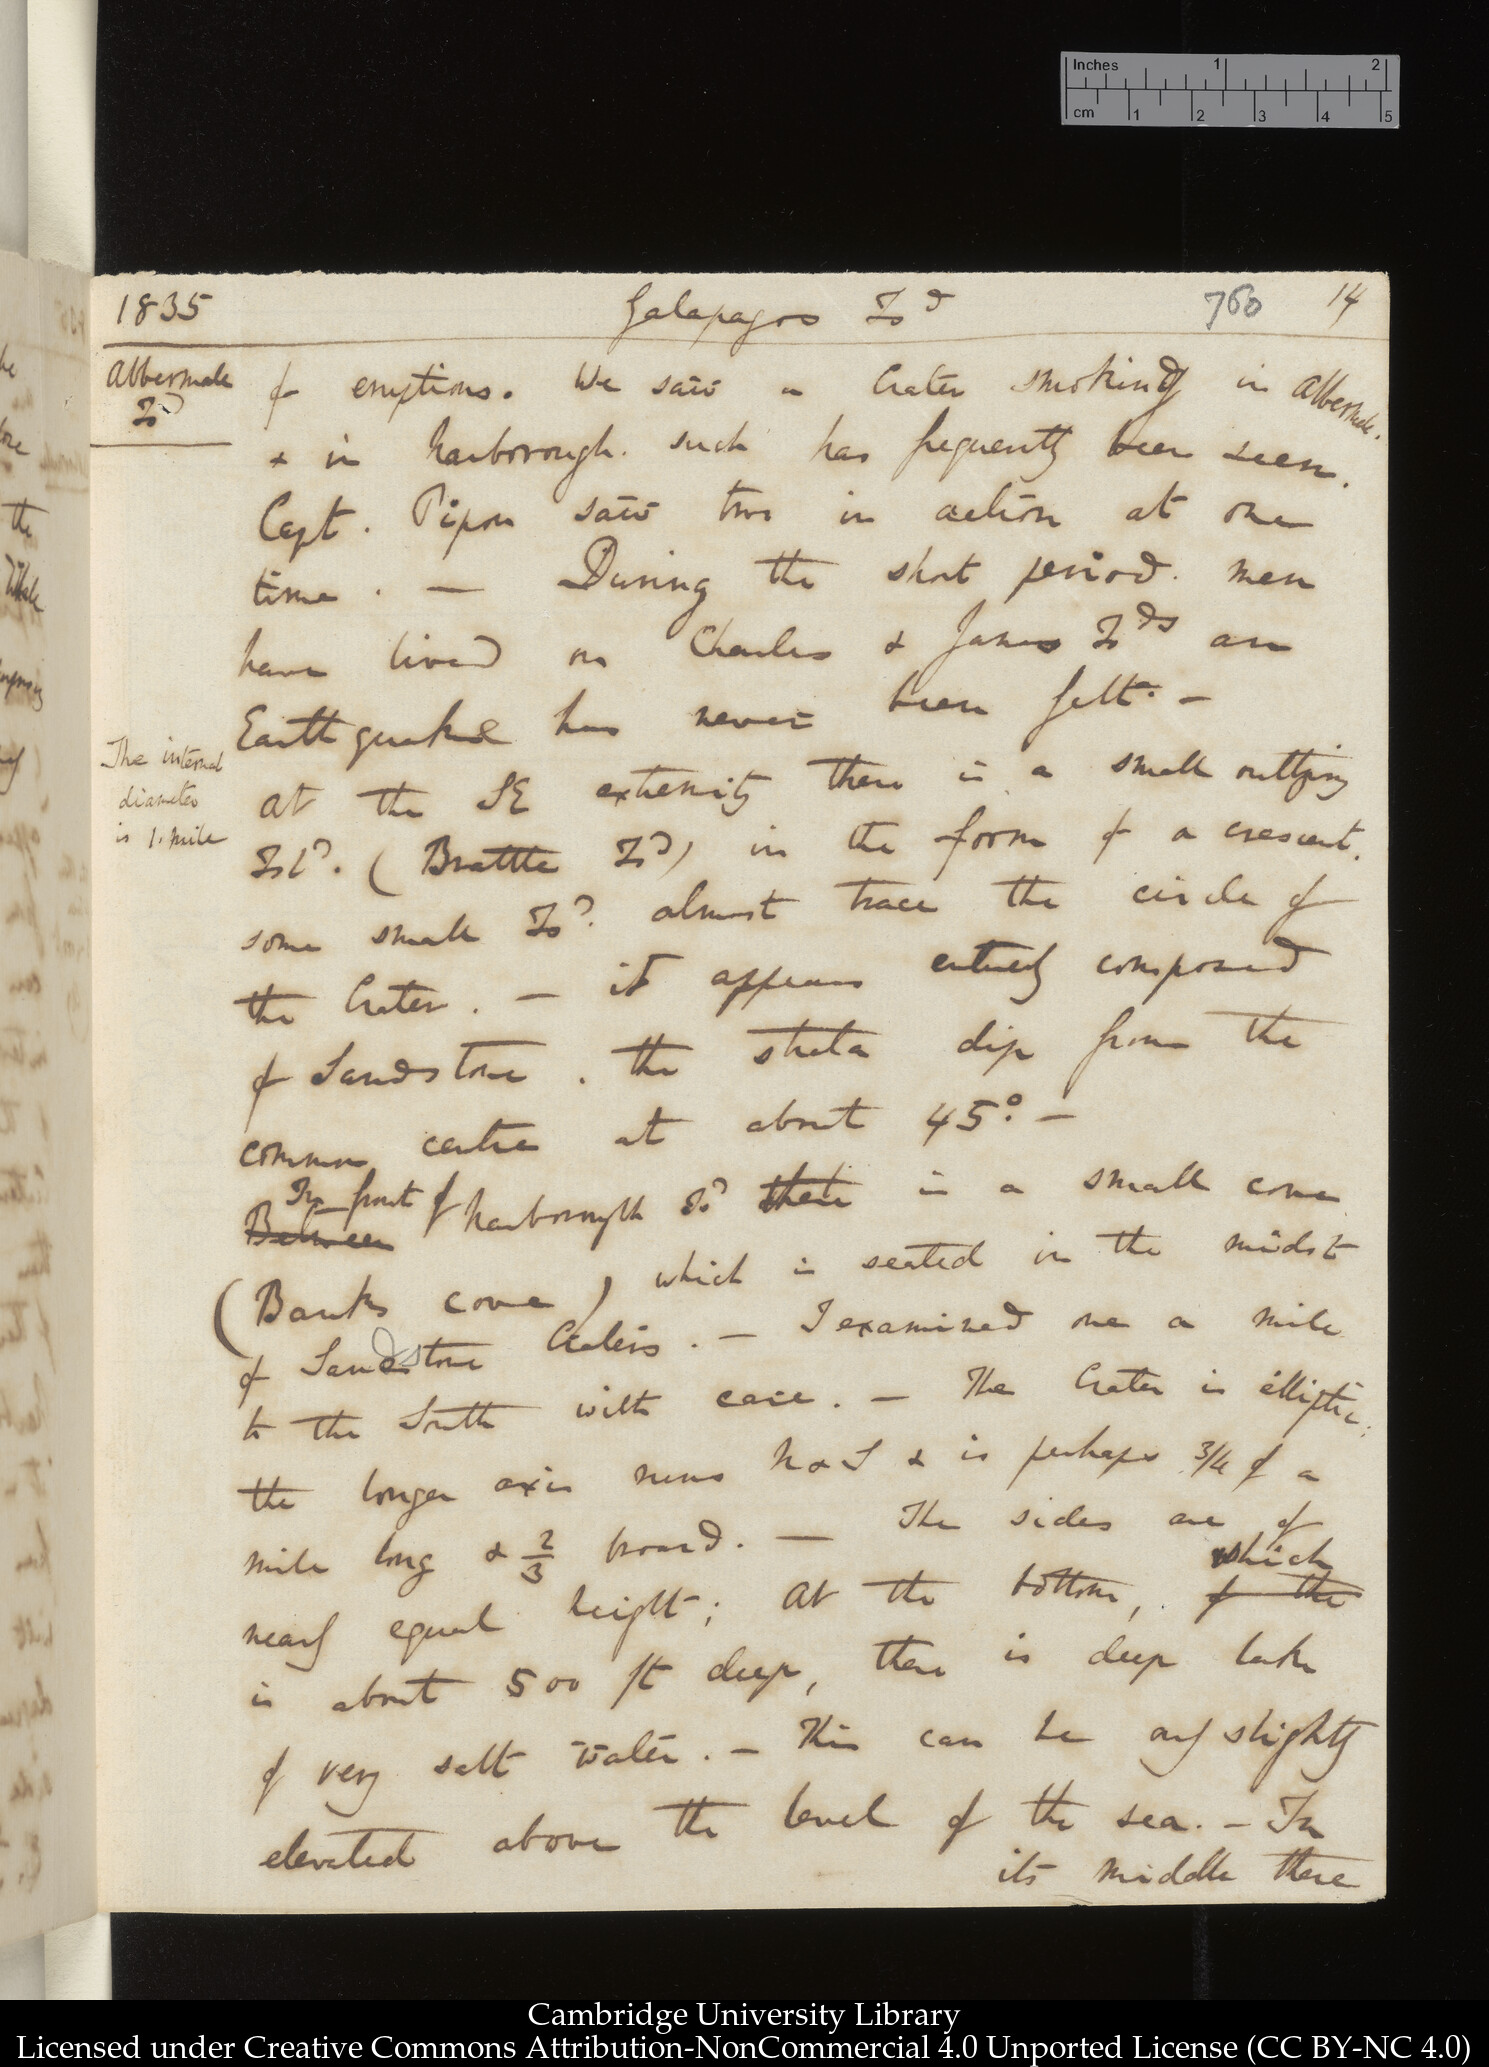 Inches 1 2
cm 1 2 3 4 5
1835 Galapagos Isd 760 14
Albermale
Isd
of eruptions. We saw a Crater smoking in Albermale.
& in Narborough. such has frequently been seen.
Capt. Pipon saw two in action at one
time. — During the short period. men
have lived on Charles & James Isds an
Earthquake has never been felt. —
The internal
diameter
is 1. mile
At the SE extremity there is a small outlying
Isld. (Brattle Isd) in the form of a crescent.
some small Isd. almost trace the circle of
the Crater. — it appears entirely composed
of Sandstone. the strata dip from the
common centre at about 45°. —
In front of
Between Narborough Isd there is a small cove
(Banks cove) which is seated in the midst
of Sandstone Craters. — I examined one a mile
to the South with care. — The Crater is elliptic;
the longer axis runs N & S & is perhaps 3/4 of a
mile long & 2/3 broad. — The sides are of
which
nearly equal height; At the bottom, of the
is about 500 ft deep, there is deep lake
of very salt water. — This can be only slightly
elevated above the level of the sea. — In
its middle there
Cambridge University Library
Licensed under Creative Commons Attribution-NonCommercial 4.0 Unported License (CC BY-NC 4.0)